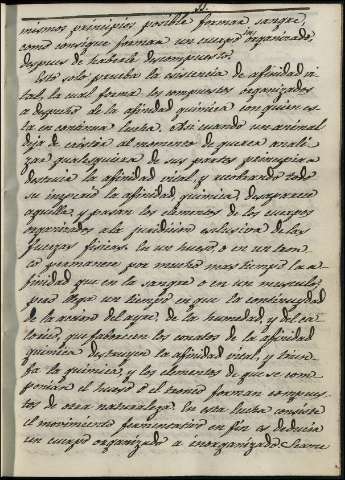 mismos principios posible formar sangre,
como consigue formar un cuerpo inorganizado,
despues de haberle descompuesto.
Esto solo prueba la existencia de afinidad vi-
tal, la cual forma los compuestos organizados
a despecho de la afinidad quimica con quien es-
ta en continua lucha. Asi cuando un animal
deja de existir al momento de querer anali-
zar qualesquiera de sus partes principia a
destruir la afinidad vital, y recobrando todo
su imperio la afinidad quimica, desaparece
aquella, y pasan los elementos de los cuerpos
organizados a la jurisdicion esclusiva de las
fuerzas fisicas. En un hueso o en un tron-
co permanece por mucho mas tiempo la a-
finidad que en la sangre o en un musculo,
pero llega un tiempo en que la continuidad
de la accion del ayre, de la humedad, y del ca-
lorico, que faborecen los conatos de la afinidad
quimica destruyen la afinidad vital, y triun-
fa la quimica, y los elementos de que se com-
ponian el hueso o el tronco forman compues-
tos de otra naturaleza. En esta lucha consiste
el movimiento fermentativo en fin es deducir
un cuerpo organizado a inorganizado.